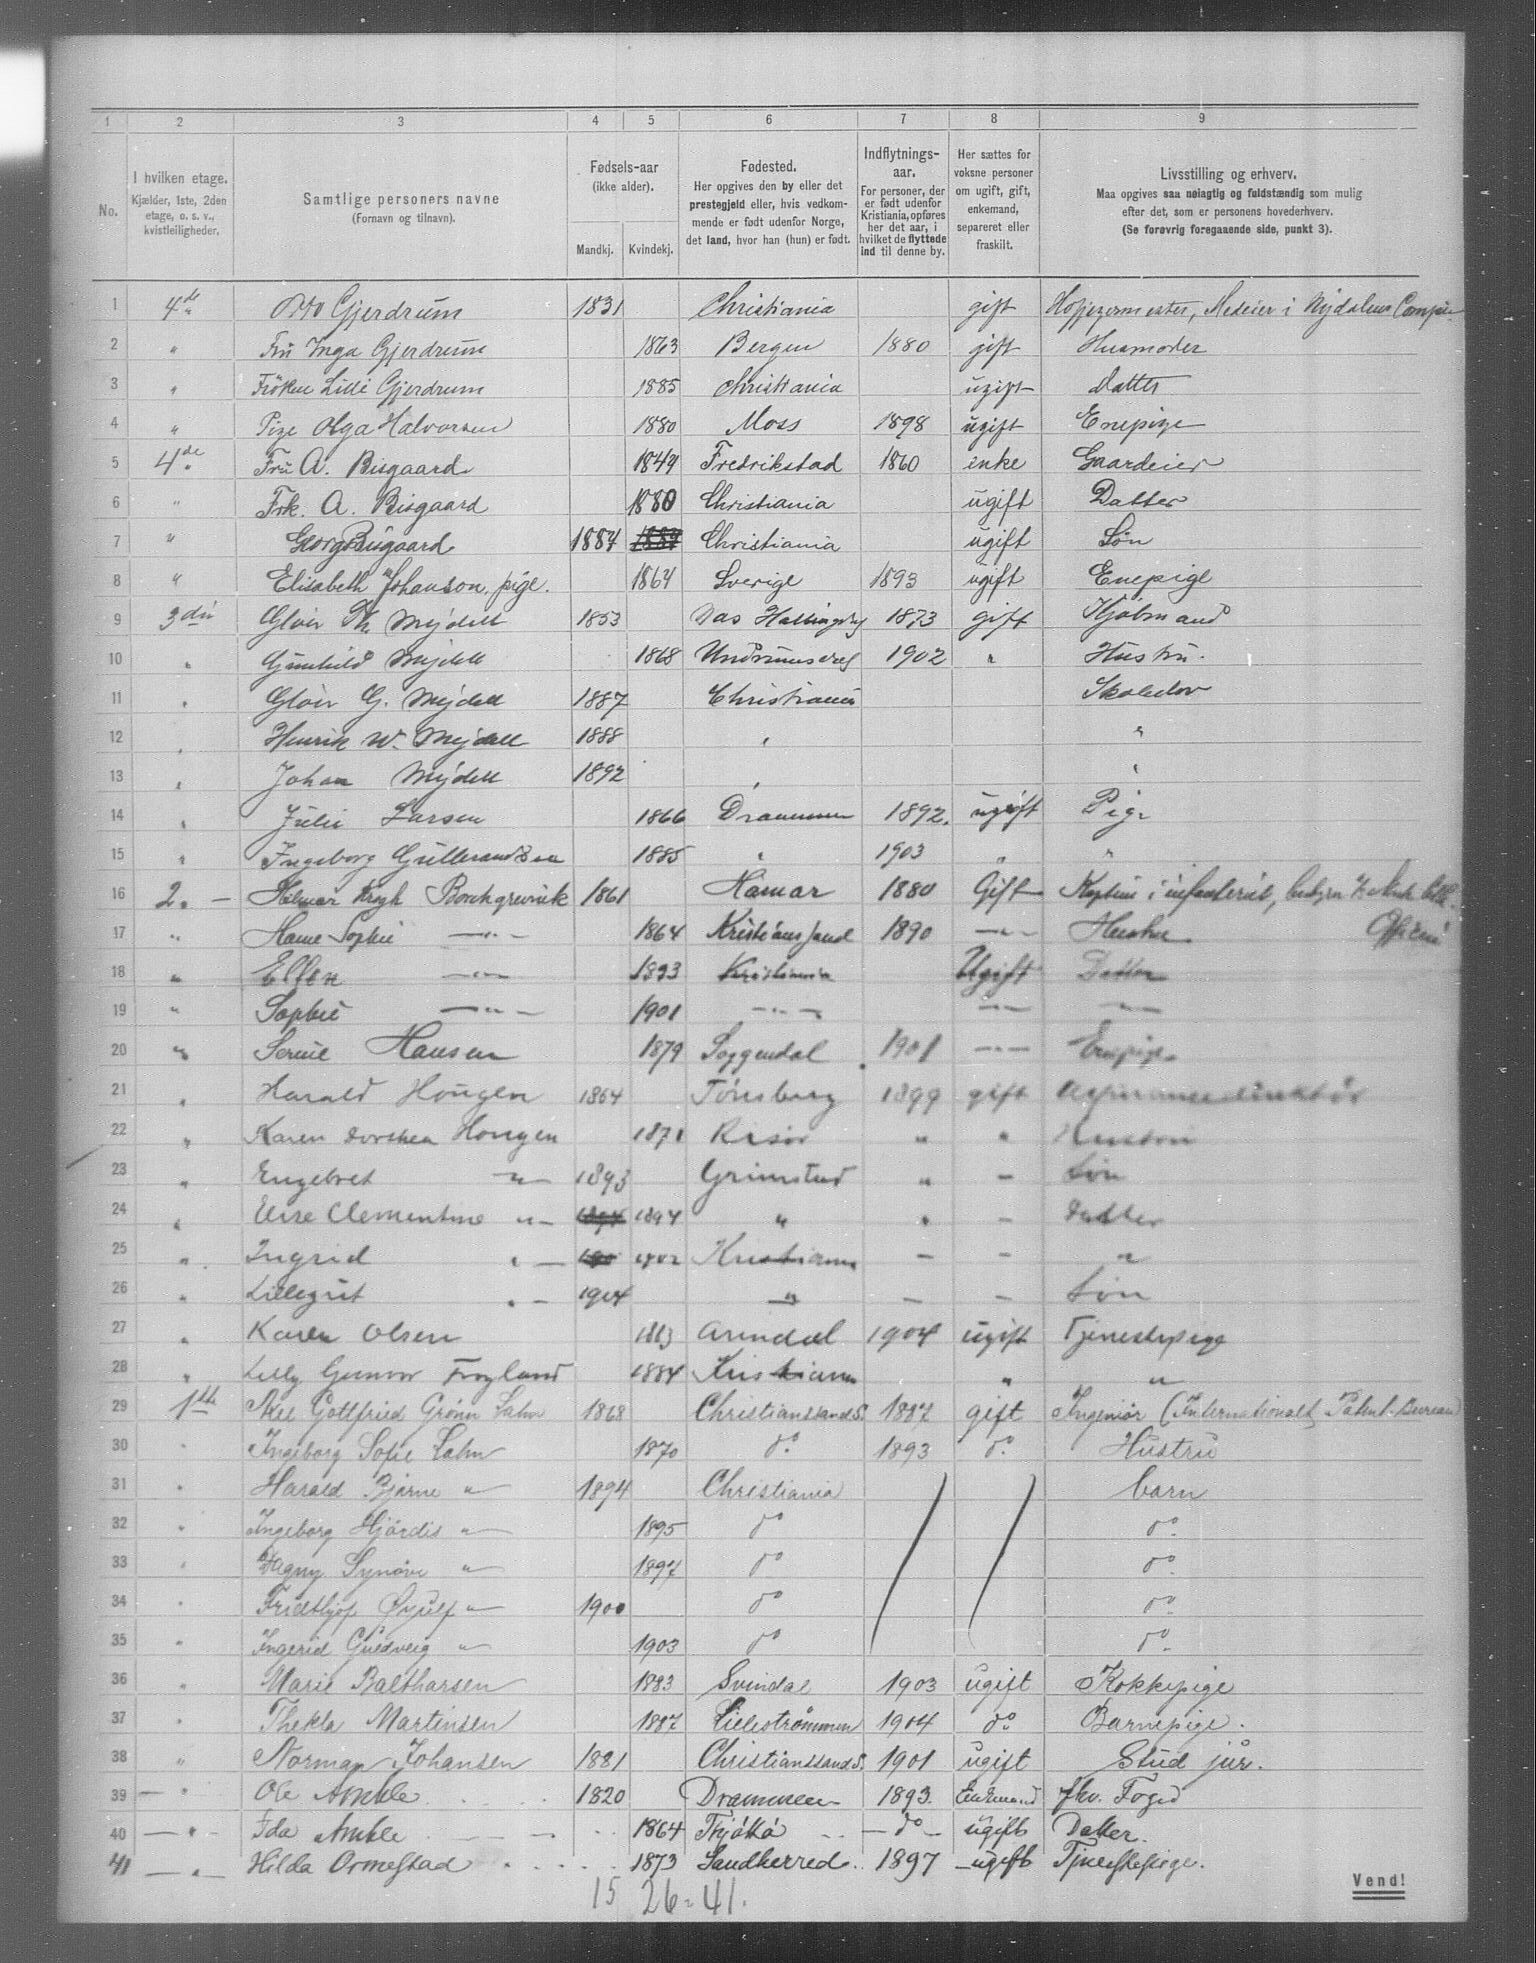 1 2 3 4 5 6 7 8 9
No.
I hvilken etage.
Kjælder, 1ste, 2den
etage, o. s. v.,
kvistleiligheder.
Samtlige personers navne
(Fornavn og tilnavn).
Fødsels-aar
(ikke alder).
Mandkj. Kvindekj.
Fødested.
Her opgives den by eller det
prestegjeld eller, hvis vedkom-
mende er født udenfor Norge,
det land, hvor han (hun) er født.
Indflytnings-
aar.
For personer, der
er født udenfor
Kristiania, opføres
her det aar, i
hvilket de flyttede
ind til denne by.
Her sættes for
voksne personer
om ugift, gift,
enkemand,
separeret eller
fraskilt.
Livsstilling og erhverv.
Maa opgives saa nøiagtig og fuldstændig som mulig
efter det, som er personens hovederhverv.
(Se forøvrig foregaaende side, punkt 3).
1 4de Otto Gjerdrum 1831 Christiania gift Hofjægermester, Medeier i Nydalens Compie.
2 " Fru Inga Gjerdrum 1863 Bergen 1880 gift Husmoder
3 " Fröken Lilli Gjerdrum 1885 Christiania ugift Datter
4 " Pige Olga Halvorsen 1880 Moss 1898 ugift Enepige
5 4de Fru A. Bisgaard 1849 Fredrikstad 1860 enke Gaardeier
6 " Frk. A. Bisgaard 1880 Christiania ugift Datter
7 " Georg Bisgaard 1884 Christiania ugift Søn
8 " Elisabeth Johanson. pige. 1864 Sverige 1893 ugift Enepige
9 3die Gløer Th. Mejdell 1853 Næs Hallingdal 1873 gift Kjøbmand
10 " Gunhild Mejdell 1868 1902 " Hustru.
11 " Gløer G. Mejdell 1887 Christiania Skoleelev
12 " Henrik W. Mejdell 1888 " "
13 " Johan Mejdell 1892 " "
14 " Julie Larsen 1866 Drammen 1892. ugift Pige
15 " Ingeborg Gulbrandsen 1885 " 1903 " "
16 2. – Hilmar Krogh Borchgrevink 1861 Hamar 1880 Gift Kaptein i infanteriet,
17 " Hanne Sophie —"— 1864 Kristianssand 1890 —"— Hustru
18 " Ellen —"— 1893 Kristiania Ugift Datter
19 " Sophie —"— 1901 —"— —"— —"—
20 " Serine Hansen 1879 Soggendal 1901 —"— Enepige
21 " Harald Hougen 1864 Tönsberg 1899 gift Assurancedirektör
22 " Karen Dorthea Hougen 1871 Risör " " Hustru
23 " Engebret —"— 1893 Grimstad " – Søn
24 " Else Clementine "– 1894 " " – Datter
25 " Ingrid " – 1902 Kristiania – – "
26 " " – 1904 " – – Søn
27 " Karen Olsen 1883 Arendal 1904 ugift Tjenestepige
28 " Lilly Gunvor Frogland 1884 Kristiania " "
29 1ste Axel Gottfried Grönn Lahn 1868 Christianssand S. 1887 gift Ingeniør (Internationalt Patent-Bureau)
30 " Ingeborg Sofie Lahn 1870 do. 1893 do. Hustru
31 " Harald Bjarne " 1894 Christiania barn
32 " Ingeborg Hjördis " 1895 do do.
33 " Dagny Synöve " 1897 do do.
34 " Fridthjof Øyulf " 1900 do do.
35 " Ingerid Guldveig " 1903 do do.
36 " Marie Baltharsen 1883 Svindal 1903 ugift Kokkepige
37 " Thekla Martinsen 1887 Lilleströmmen 1904 do. Barnepige.
38 " Norman Johansen 1881 Christianssand S. 1901 ugift Stud jur.
39 – " Ole Amble 1820 Drammen 1893. Enkemand fhv. Foged
40 – " – Ida Amble 1864 Thjøttø – do – ugift Datter.
41 – " Hilda Ormestad 1873 Sandherred. 1897 ugift Tjenestepige.
15 26 = 41.
Vend!